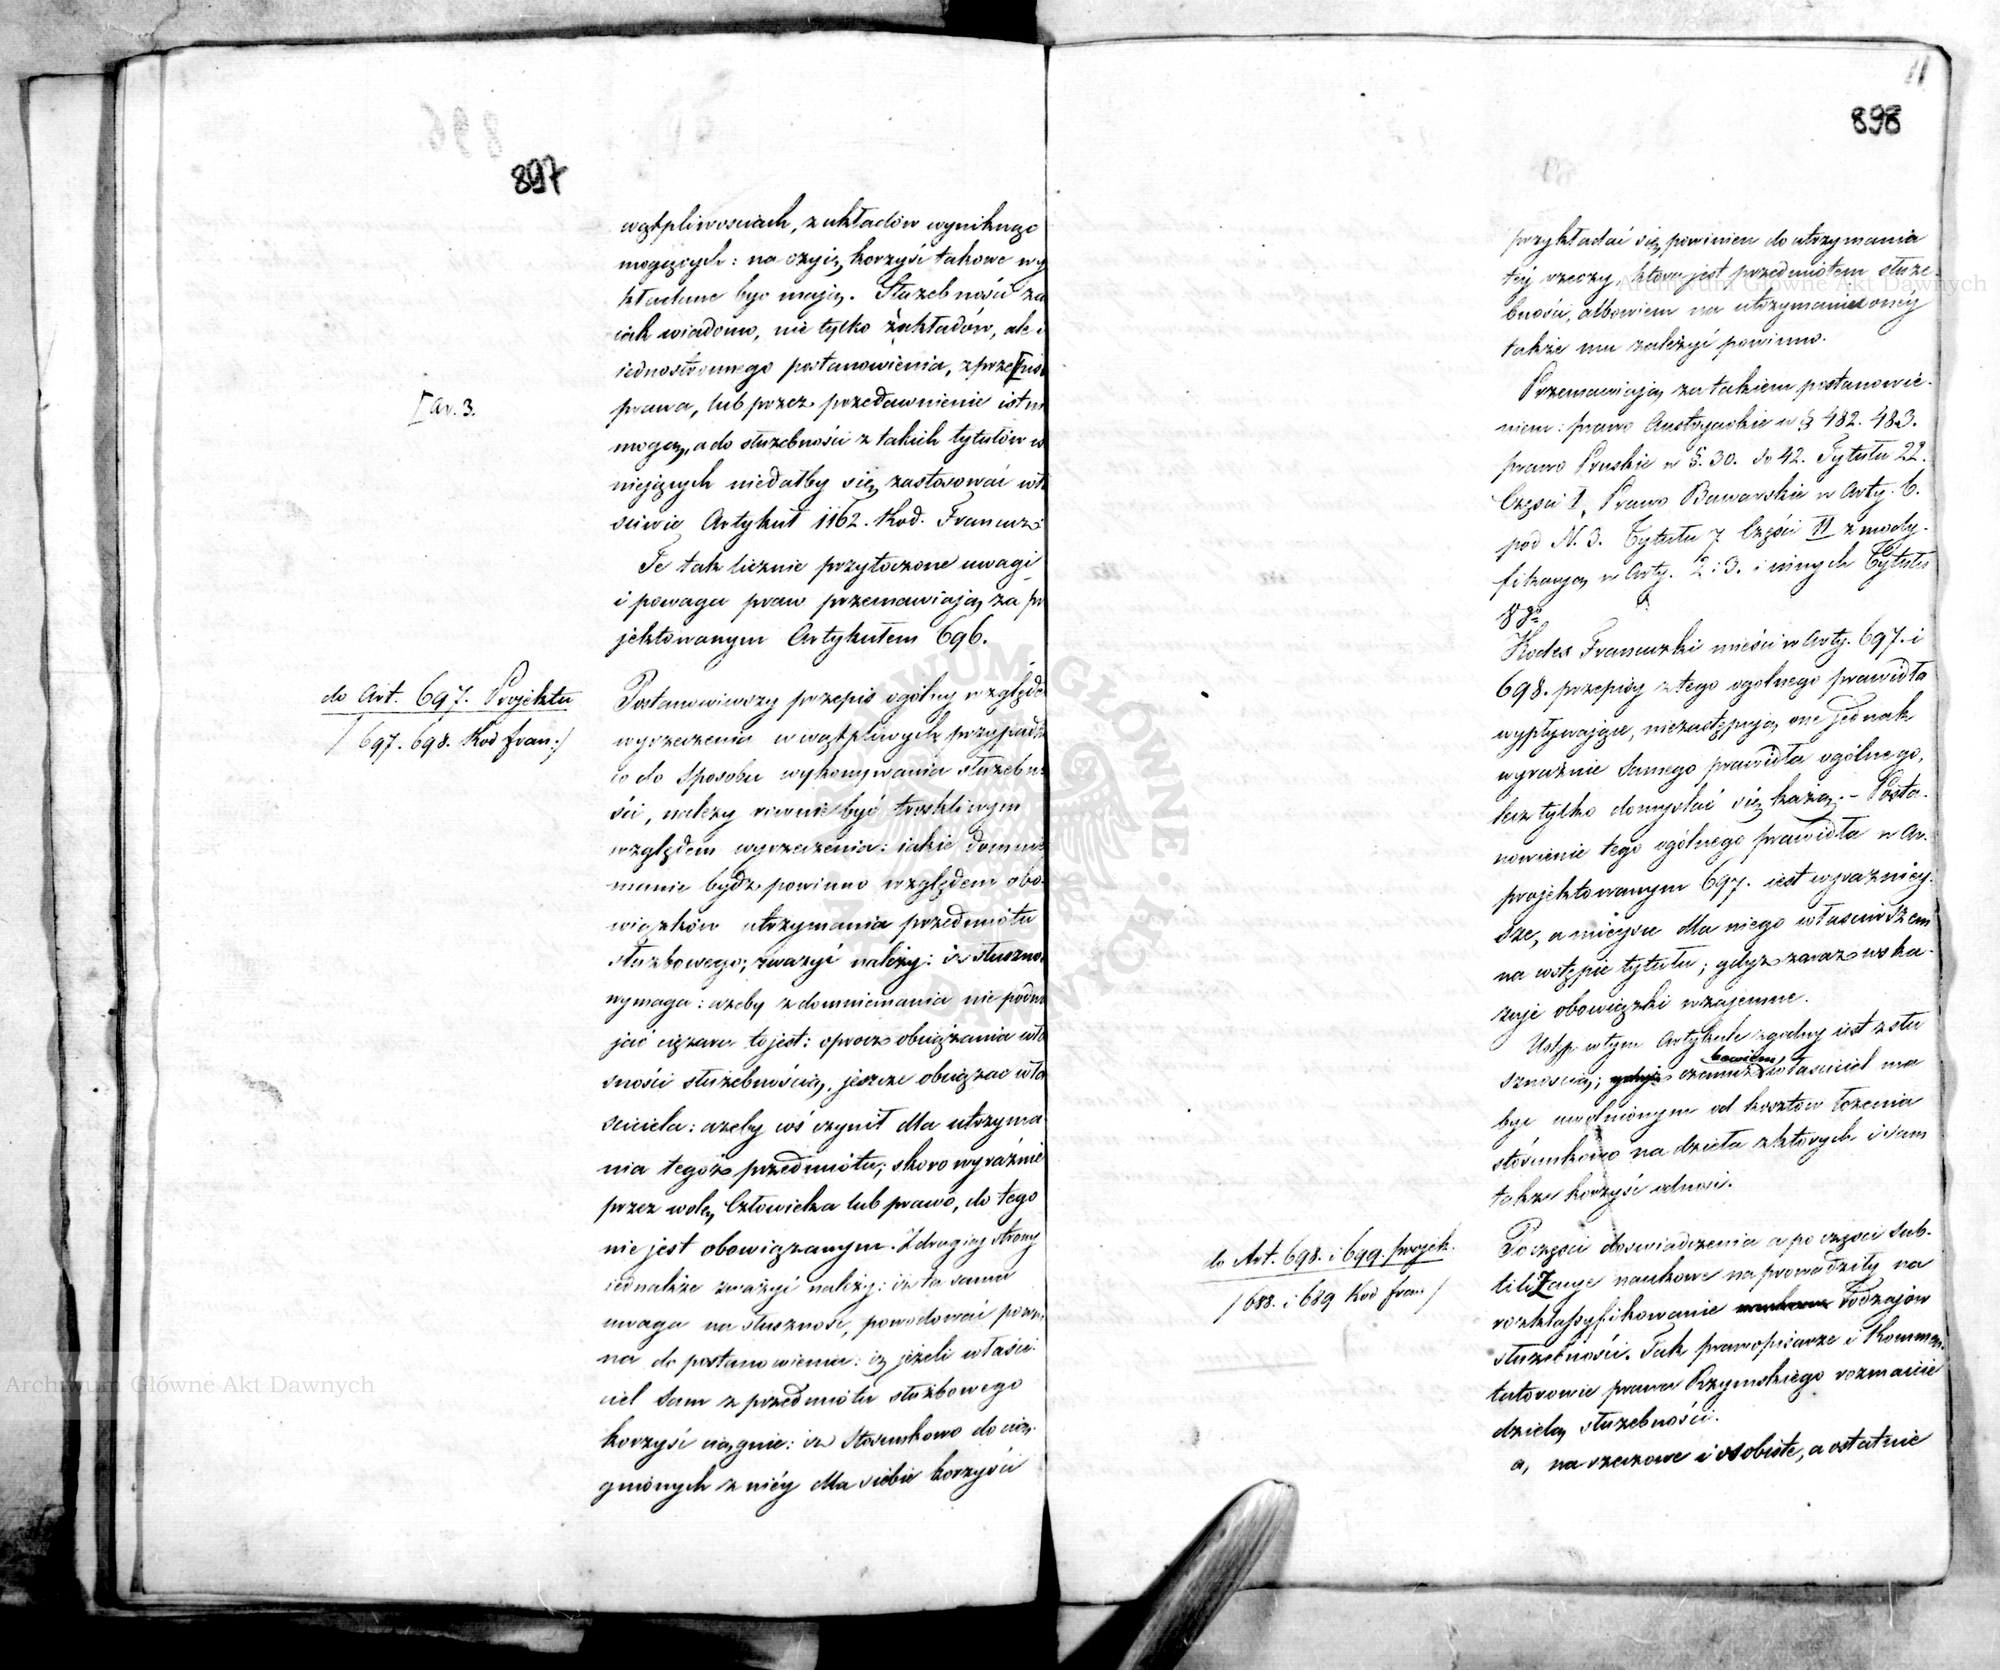 897
wątpliwosciach, z układów wyniknąć
mogących: na czyią korzyść takowe wy
kładane być mają. Służebności za
iak wiadomo, nie tylko z układów, ale i
iednostronnego postanowienia, z przepisu
prawa, lub przez przedawnienie istni
mogą, a do służebności z takich tytułów
nieiących niedałby się zastosować wła
sciwie Artykuł 1162. Kod. Francuzki
Te tak licznie przytoczone uwagi
i powaga praw przemawiaią za pr
jektowanym Artykułem 696.
[ar. 3.
do Art. 697. Projektu
/ 697. 698. Kod fran:/
Postanowiwszy przepis ogólny względe
wyrzeczenia w wątpliwych przypadk
co do sposobu wykonywania służebno
ści, należy równie być troskliwym
względem wyrzeczenia: iakie domnie
manie bydź powinno względem obo-
wiązków utrzymania przedmiotu
służbowego; zważyć należy: iż słuszno
wymaga: ażeby z domniemania nie podwa
jać ciężaru to jest: oprocz obciążania wła
sności służebnością, jeszcze obciążać wła
sciciela: ażeby coś czynił dla utrzyma-
nia tegoż przedmiotu; skoro wyraźnie
przez wolę Człowieka lub prawo, do tego
nie jest obowiązanym. Z drugiey strony
iednakże zważyć należy: iż ta sama
uwaga na słuszność, powodować powin
na do postanowienia: iż jeżeli właści-
ciel sam z przedmiotu służbowego
korzyść ciągnie: iż stosunkowo do cią-
gnionych z niéy dla siebie korzyści
11
898
przykładać się powinien do utrzymania
tej rzeczy, która jest przedmiotem służe-
bności, albowiem na utrzymaniu onéy
także mu zależyć powinno.
Przemawiaią za takiem postanowie-
niem: prawo Austryackie w § 482. 483.
prawo Pruskie w §. 30. do 42. Tytułu 22.
Części I, Prawo Bawarskie w Arty. 6.
pod N. 3. Tytułu 7 Części II z mody-
fikacyą w Arty. 2 i 3. i innych Tytułu
8go
Kodex Francuzki mieści w Arty. 697. i
698. przepisy z tego ogolnego prawidła
wypływające, niezastępuią one jednak
wyraźnie samego prawidła ogólnego,
lecz tylko domyślać się każą. – Posta-
nowienie tego ogólnego prawidła w Ar.
projektowanym 697. iest wyraźniey-
sze, a mieysce dla niego właściwszem
na wstępie tytułu; gdyż zaraz wska-
zuje obowiązki wzajemne.
Ustęp w tym Artykule zgodny iest z słu
sznością; gdyż bowiem czemuż właściciel ma
być uwolnionym od kosztów łożenia
stósunkowo na dzieła z których i sam
także korzyść odnosi.
do Art. 698. i 699. projek.
/ 688. i 689 Kod fran /
Po części doswiadczenia a po części sub-
tilizacye naukowe naprowadziły na
rozklassyfikowanie rodzajów
służebności. Tak prawopisarze i Kommen-
tatorowie prawa Rzymskiego rozmaicie
dzielą służebności.
a, na rzeczowe i osobiste, a ostatnie
Archiwum Główne Akt Dawnych
Archiwum Główne Akt Dawnych
ARCHIWUM GŁÓWNE AKT DAWNYCH